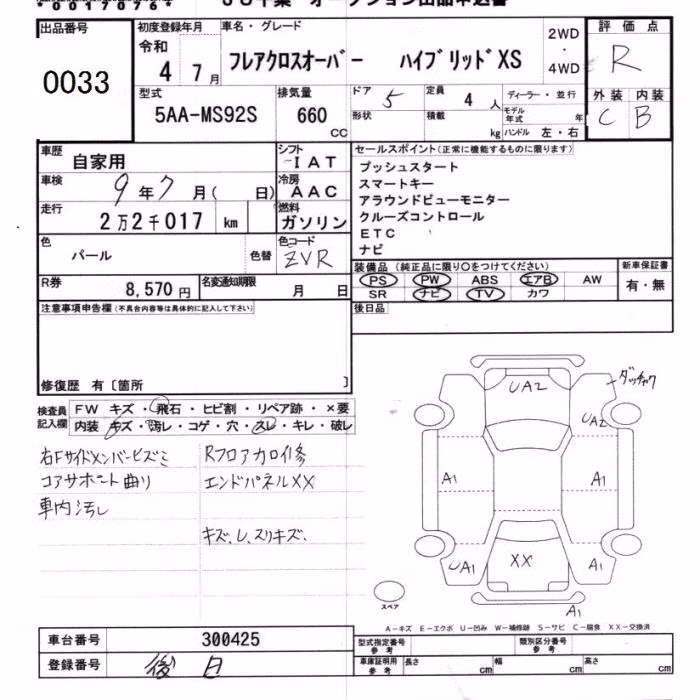 出品番号
0033
初度登録年月
令和
4 7月
車名・グレード
フレアクロスオーバー ハイブリッドXS
2WD
・
4WD
評価点
R
外装 内装
C B
型式
5AA-MS92S
排気量
660
CC
ドア 5
定員 4 人
形状
積載 kg
ディーラー・並行
モデル年式 年
ハンドル 左・右
車歴
自家用
シフト
IAT
車検
9年7月( 日)
冷房
AAC
走行
2万2千017 km
燃料
ガソリン
色
パール
色替
色コード
ZVR
R券
8,570円
名変通知期限
月 日
セールスポイント(正常に機能するものに限ります)
プッシュスタート
スマートキー
アラウンドビューモニター
クルーズコントロール
ETC
ナビ
装備品 (純正品に限り○をつけてください)
PS PW ABS エアB AW
SR ナビ TV カワ
新車保証書
有・無
後日品
注意事項申告欄(不具合内容等は具体的に記入して下さい)
修復歴 有〔箇所 〕
検査員
記入欄
FW キズ・飛石・ヒビ割・リペア跡・×要
内装・キズ・汚レ・コゲ・穴・スレ・キレ・破レ
右Fサイドメンバーヒズミ
コアサポート曲り
車内汚し
RフロアカロイEdit修
エンドパネルXX
キズ、し、スリキズ、
UA2
ダッチャク
UA2
A1
A1
UA1
XX
A1
A1
スペア
A-キズ E-エクボ U-凹み W-補修跡 S-サビ C-腐食 XX-交換済
車台番号
300425
登録番号
後日
型式指定番号
参考
類別区分番号
参考
車庫証明用
参考
長さ cm
幅 cm
高さ cm